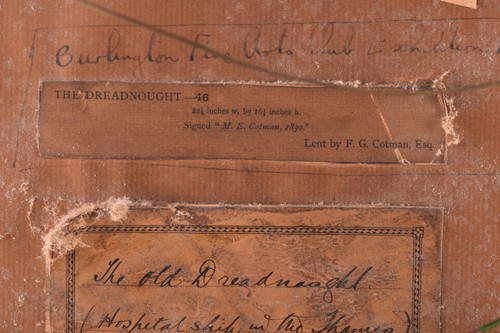 Burlington Fine Arts Club Exhibition
THE DREADNOUGHT.—46
22¼ inches w. by 16¼ inches h.
Signed "M. E. Cotman, 1830."
Lent by F. G. Cotman, Esq.
The old Dreadnaught.
(Hospital ship, in the Thames)